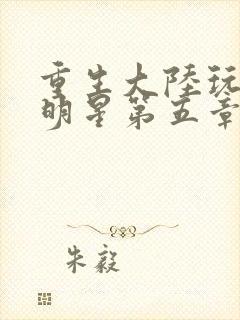 重生大陸玩
明星第五章
朱毅